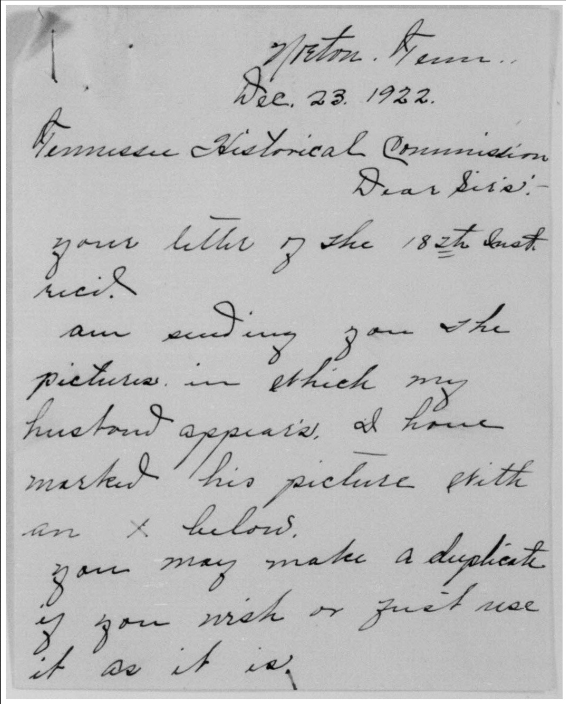 Norton. Tenn..
Dec. 23. 1922.
Tennessee Historical Commission
Dear Sirs:-
your letter of the 18th Inst.
recd.
am sending you the
pictures. in which my
husband appears. I have
marked his picture with
an X below.
you may make a duplicate
if you wish or just use
it as it is.